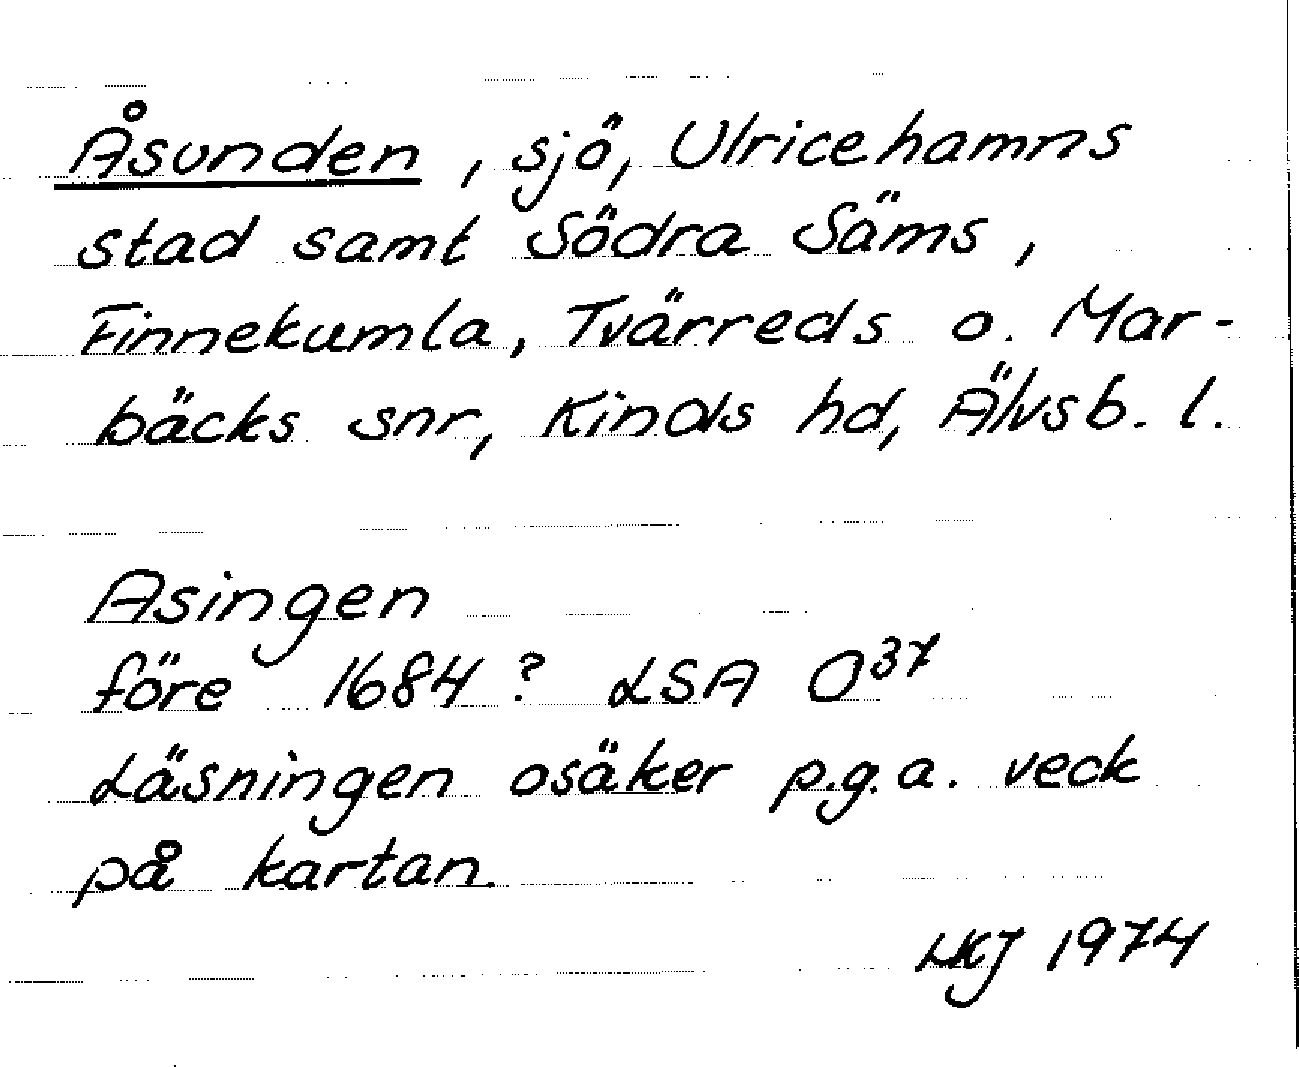 Åsunden, sjö, Ulricehamns
stad samt Södra Säms,
Finnekumla, Tvärreds o. Mar-
bäcks snr, Kinds hd, Älvsb. l.
Asingen
före 1684? LSA O³⁷
Läsningen osäker p.g.a. veck
på kartan.
LKJ 1974